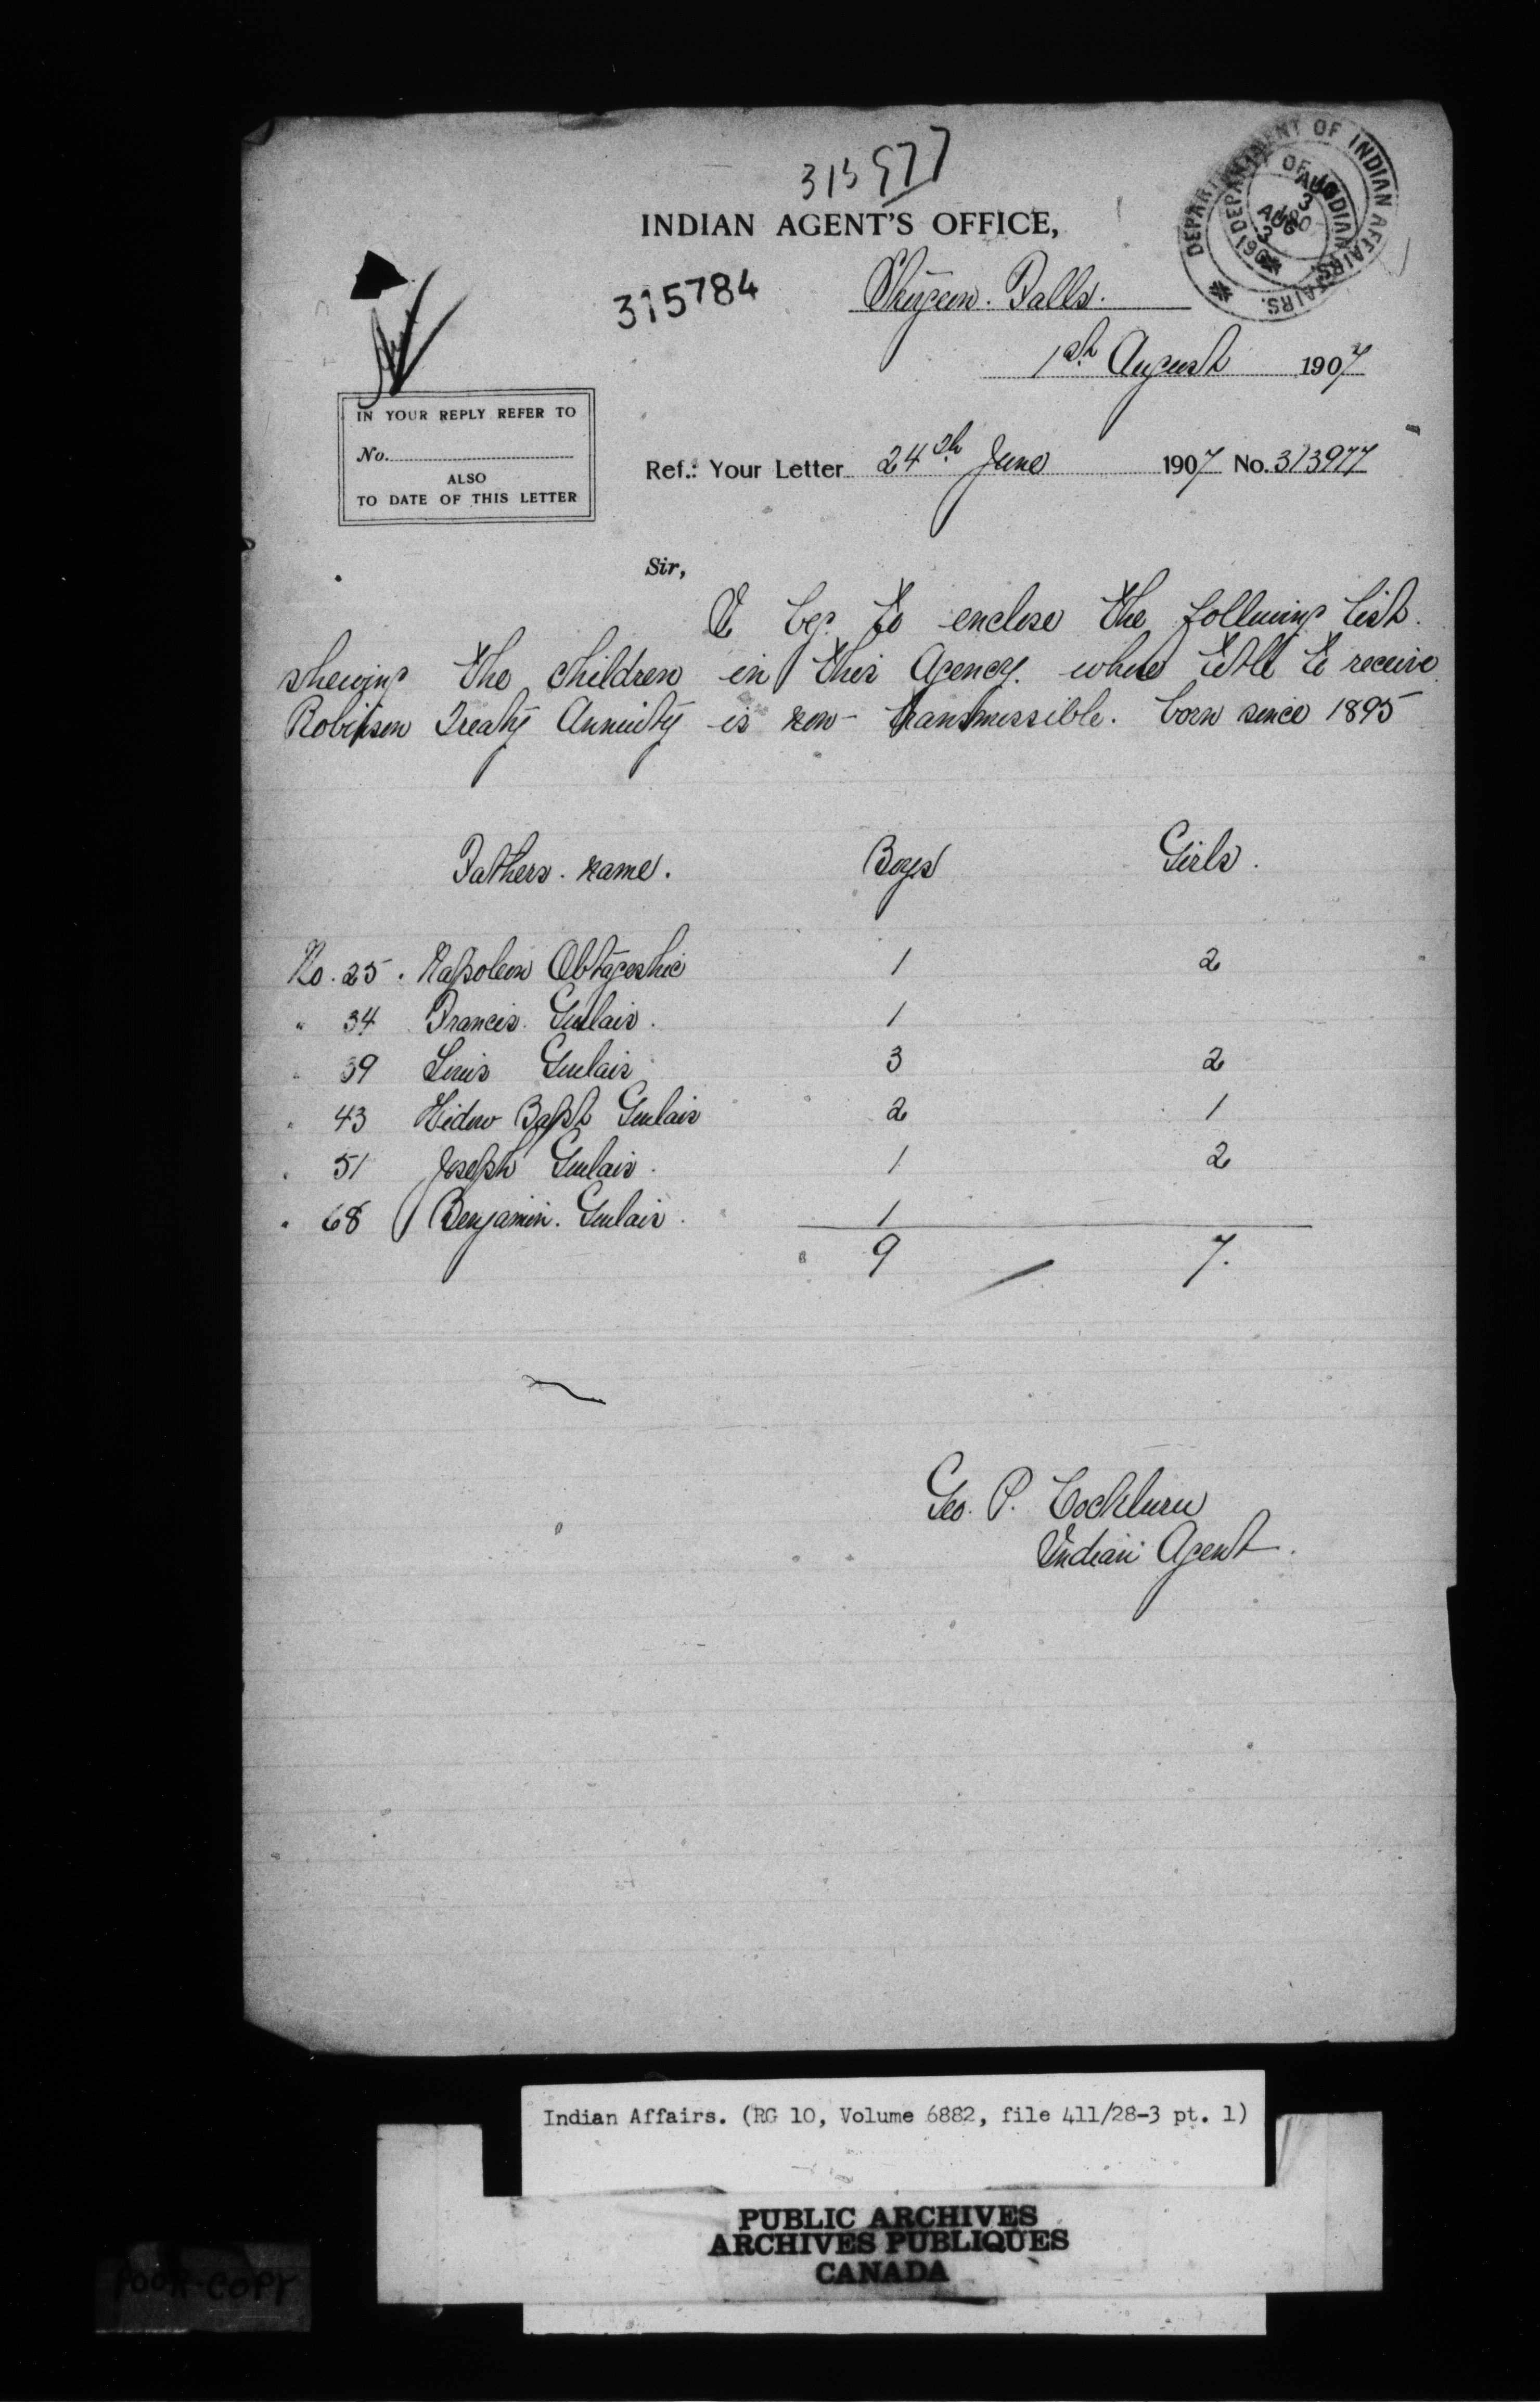 313977
INDIAN AGENT'S OFFICE,
DEPARTMENT OF INDIAN AFFAIRS.
AUG 3 1907
315784
Sturgeon Falls.
1st August 1907
IN YOUR REPLY REFER TO
No.
ALSO
TO DATE OF THIS LETTER
Ref.: Your Letter 24th June 1907 No. 313977
Sir,
I beg to enclose the following list.
shewing the children in this Agency. whose title to receive
Robinson Treaty Annuity is non-transmissible. born since 1895
Fathers. name. Boys Girls.
No. 25. Napoleon Obtageshic 1 2
" 34 Francis. Goulais. 1
" 39 Louis Goulais 3 2
" 43 Widow Bapt Goulais 2 1
" 51 Joseph Goulais. 1 2
" 68 Benjamin. Goulais. 1
9 7.
Geo. P. Cockburn
Indian Agent.
Indian Affairs. (RG 10, Volume 6882, file 411/28-3 pt. 1)
PUBLIC ARCHIVES
ARCHIVES PUBLIQUES
CANADA
POOR COPY